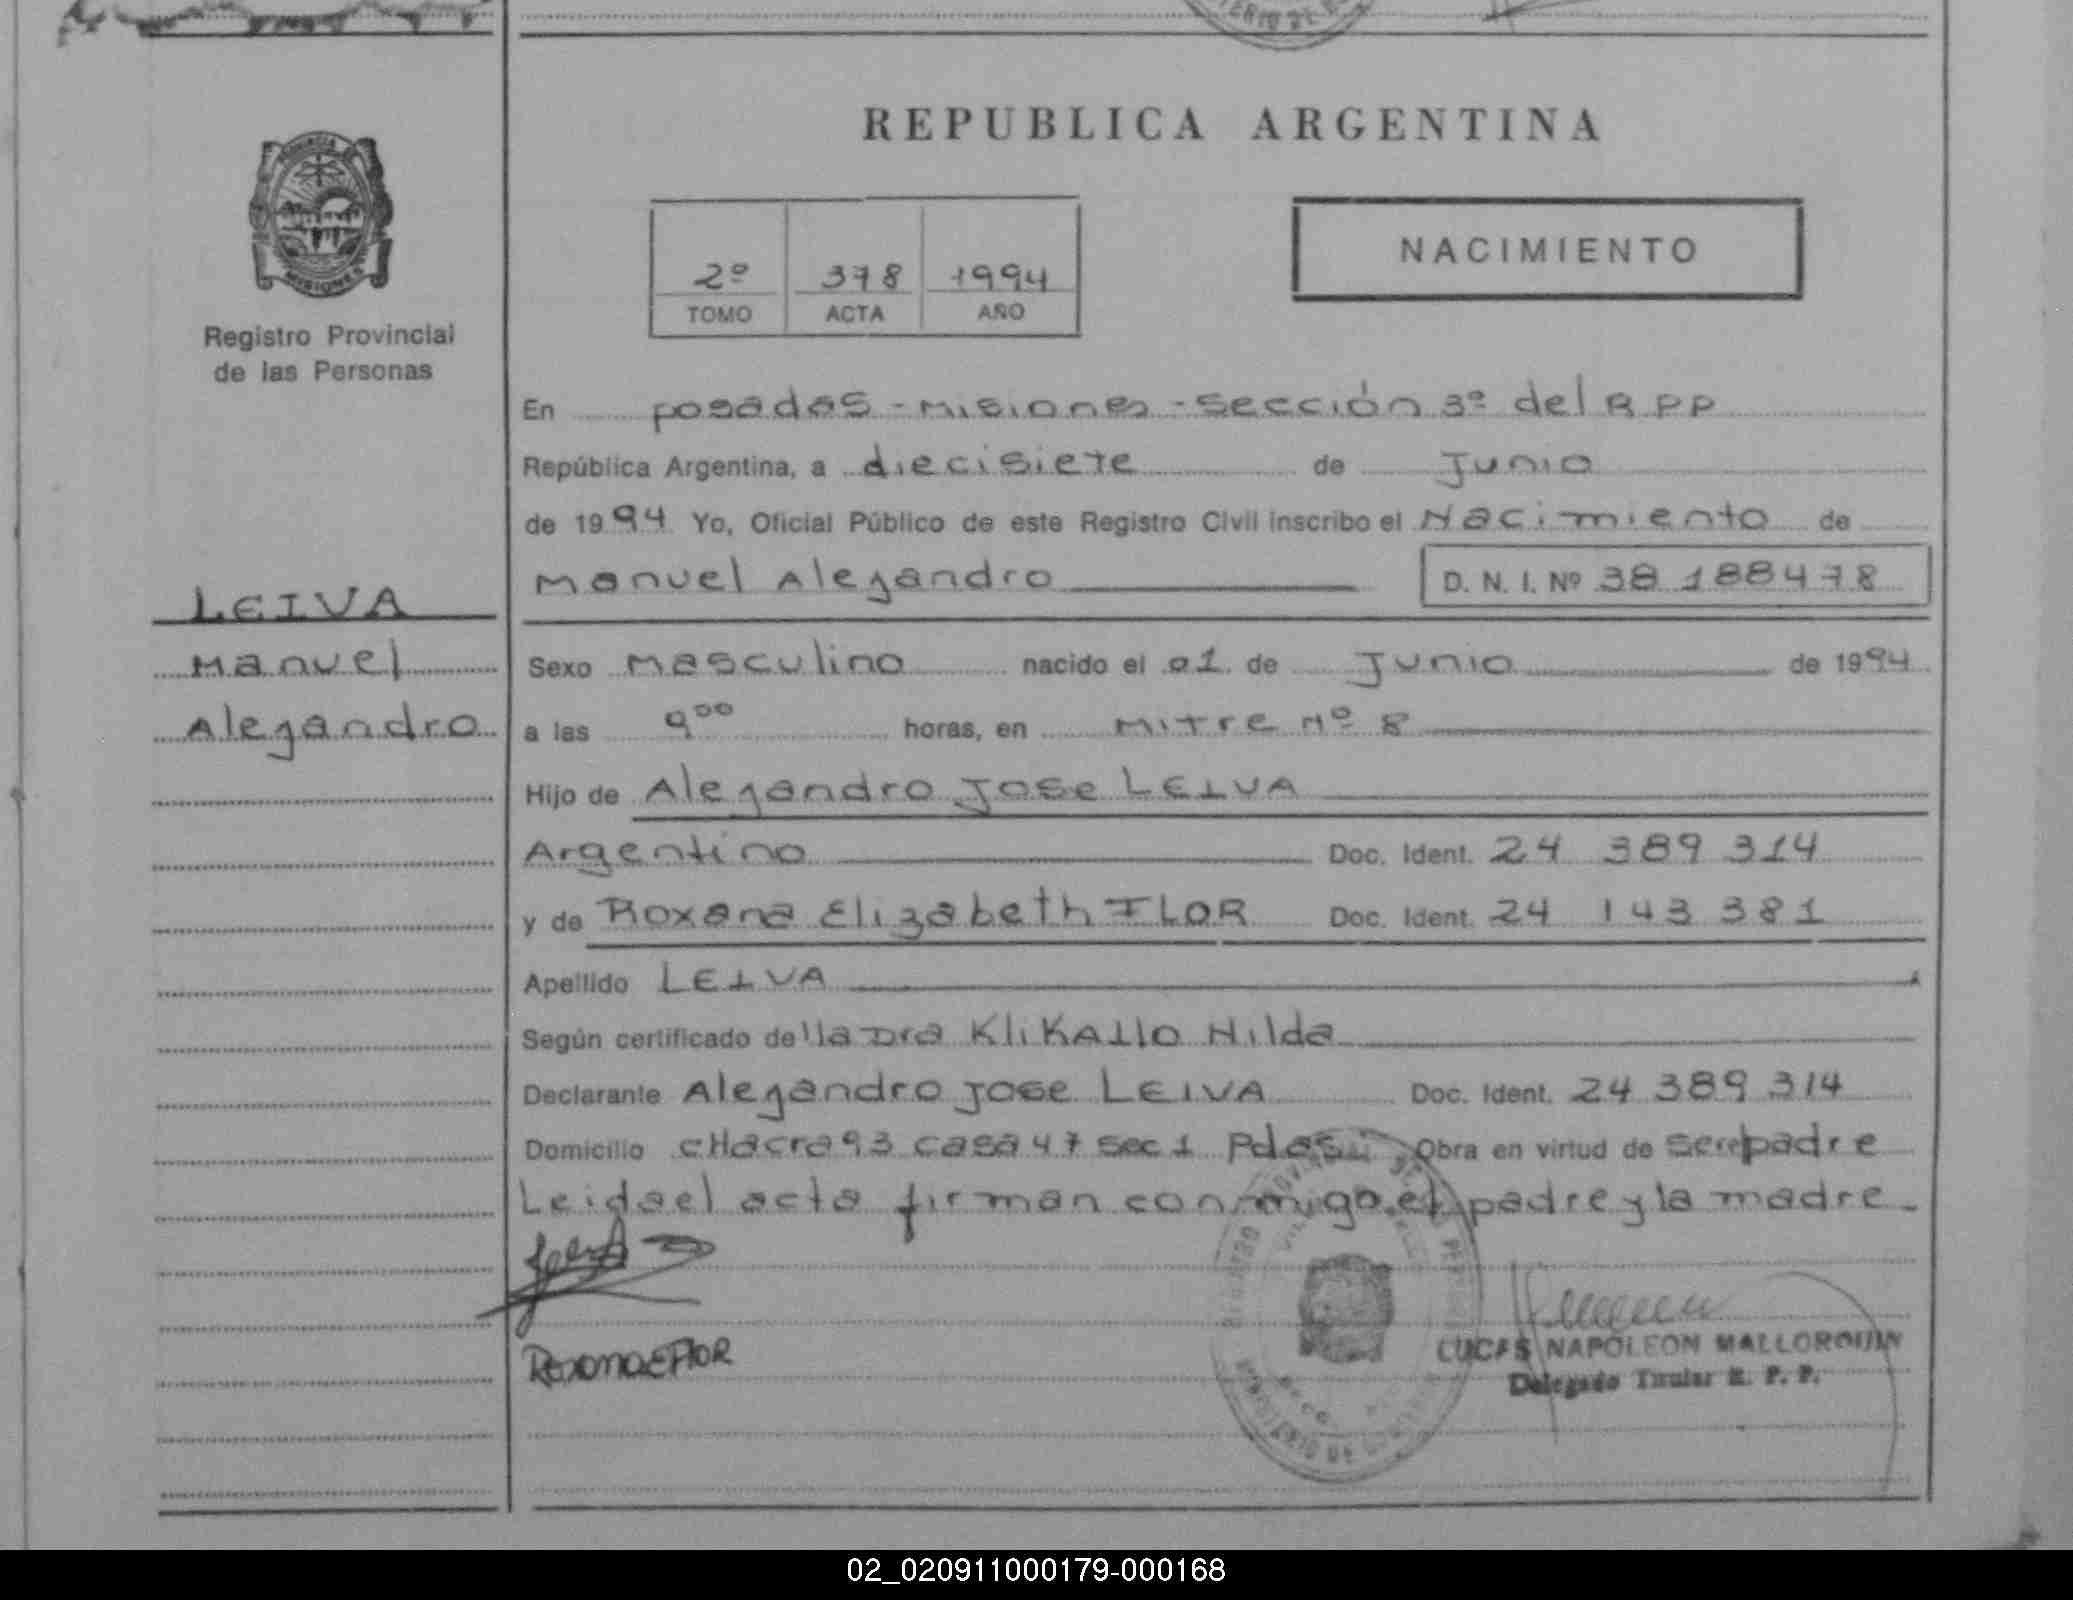 REPUBLICA ARGENTINA
MISIONES
Registro Provincial
de las Personas
2º 378 1994
TOMO ACTA AÑO
NACIMIENTO
En posadas - Misiones - sección 3º del R P P
República Argentina, a diecisiete de Junio
de 1994 Yo, Oficial Público de este Registro Civil inscribo el Nacimiento de
Manuel Alejandro D. N. I. Nº 38 188478
LEIVA
Manuel
Alejandro
Sexo Masculino nacido el 01 de Junio de 1994
a las 9ºº horas, en Mitre Nº 8
Hijo de Alejandro Jose LEIVA
Argentino Doc. Ident. 24 389 314
y de Roxana Elizabeth FLOR Doc. Ident. 24 143 381
Apellido LEIVA
Según certificado de lla Dra Hilda
Declarante Alejandro Jose LEIVA Doc. Ident. 24 389 314
Domicilio cHacra 93 casa 47 sec 1 Pdas Obra en virtud de ser el padre
Leida el acta firman conmigo el padre y la madre
RoxanaEFlor
LUCAS NAPOLEON MALLORQUIN
Delegado Titular R. P. P.
02_020911000179-000168